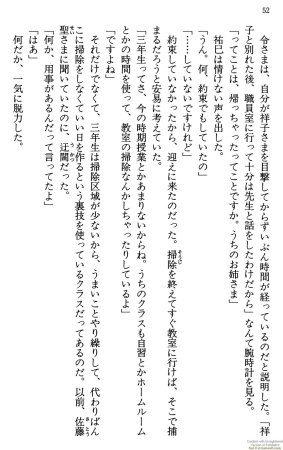 52
　令さまは、自分が祥子さまを目撃してからずいぶん時間が経っているのだと説明した。「祥
子と別れた後、職員室に行って十分は先生と話をしたわけだから」なんて腕時計を見る。
「ってことは、帰っちゃったってことですか。うちのお姉さま」
　祐巳は情けない声を出した。
「うん。何、約束でもしていたの」
「……していないですけれど」
　約束していなかったから、迎えに来たのだった。掃除を終えてすぐ教室に行けば、そこで捕
まるだろうと安易に考えていた。
「三年生ってさ、今の時期授業とかあまりないからね。うちのクラスも自習とかホームルーム
とかの時間を使って、教室の掃除なんかしちゃったりしているよ」
「ですよね」
　それだけでなく、三年生は掃除区域が少ないから、うまいことやり繰りして、代わりばん
こに掃除をしなくていい日を作るという裏技を使っているクラスだってあるのだ。以前、佐藤
聖さまに聞いていたのに、迂闊だった。
「何か、用事があるんだって言ってたよ」
「はあ」
　何だか、一気に脱力した。